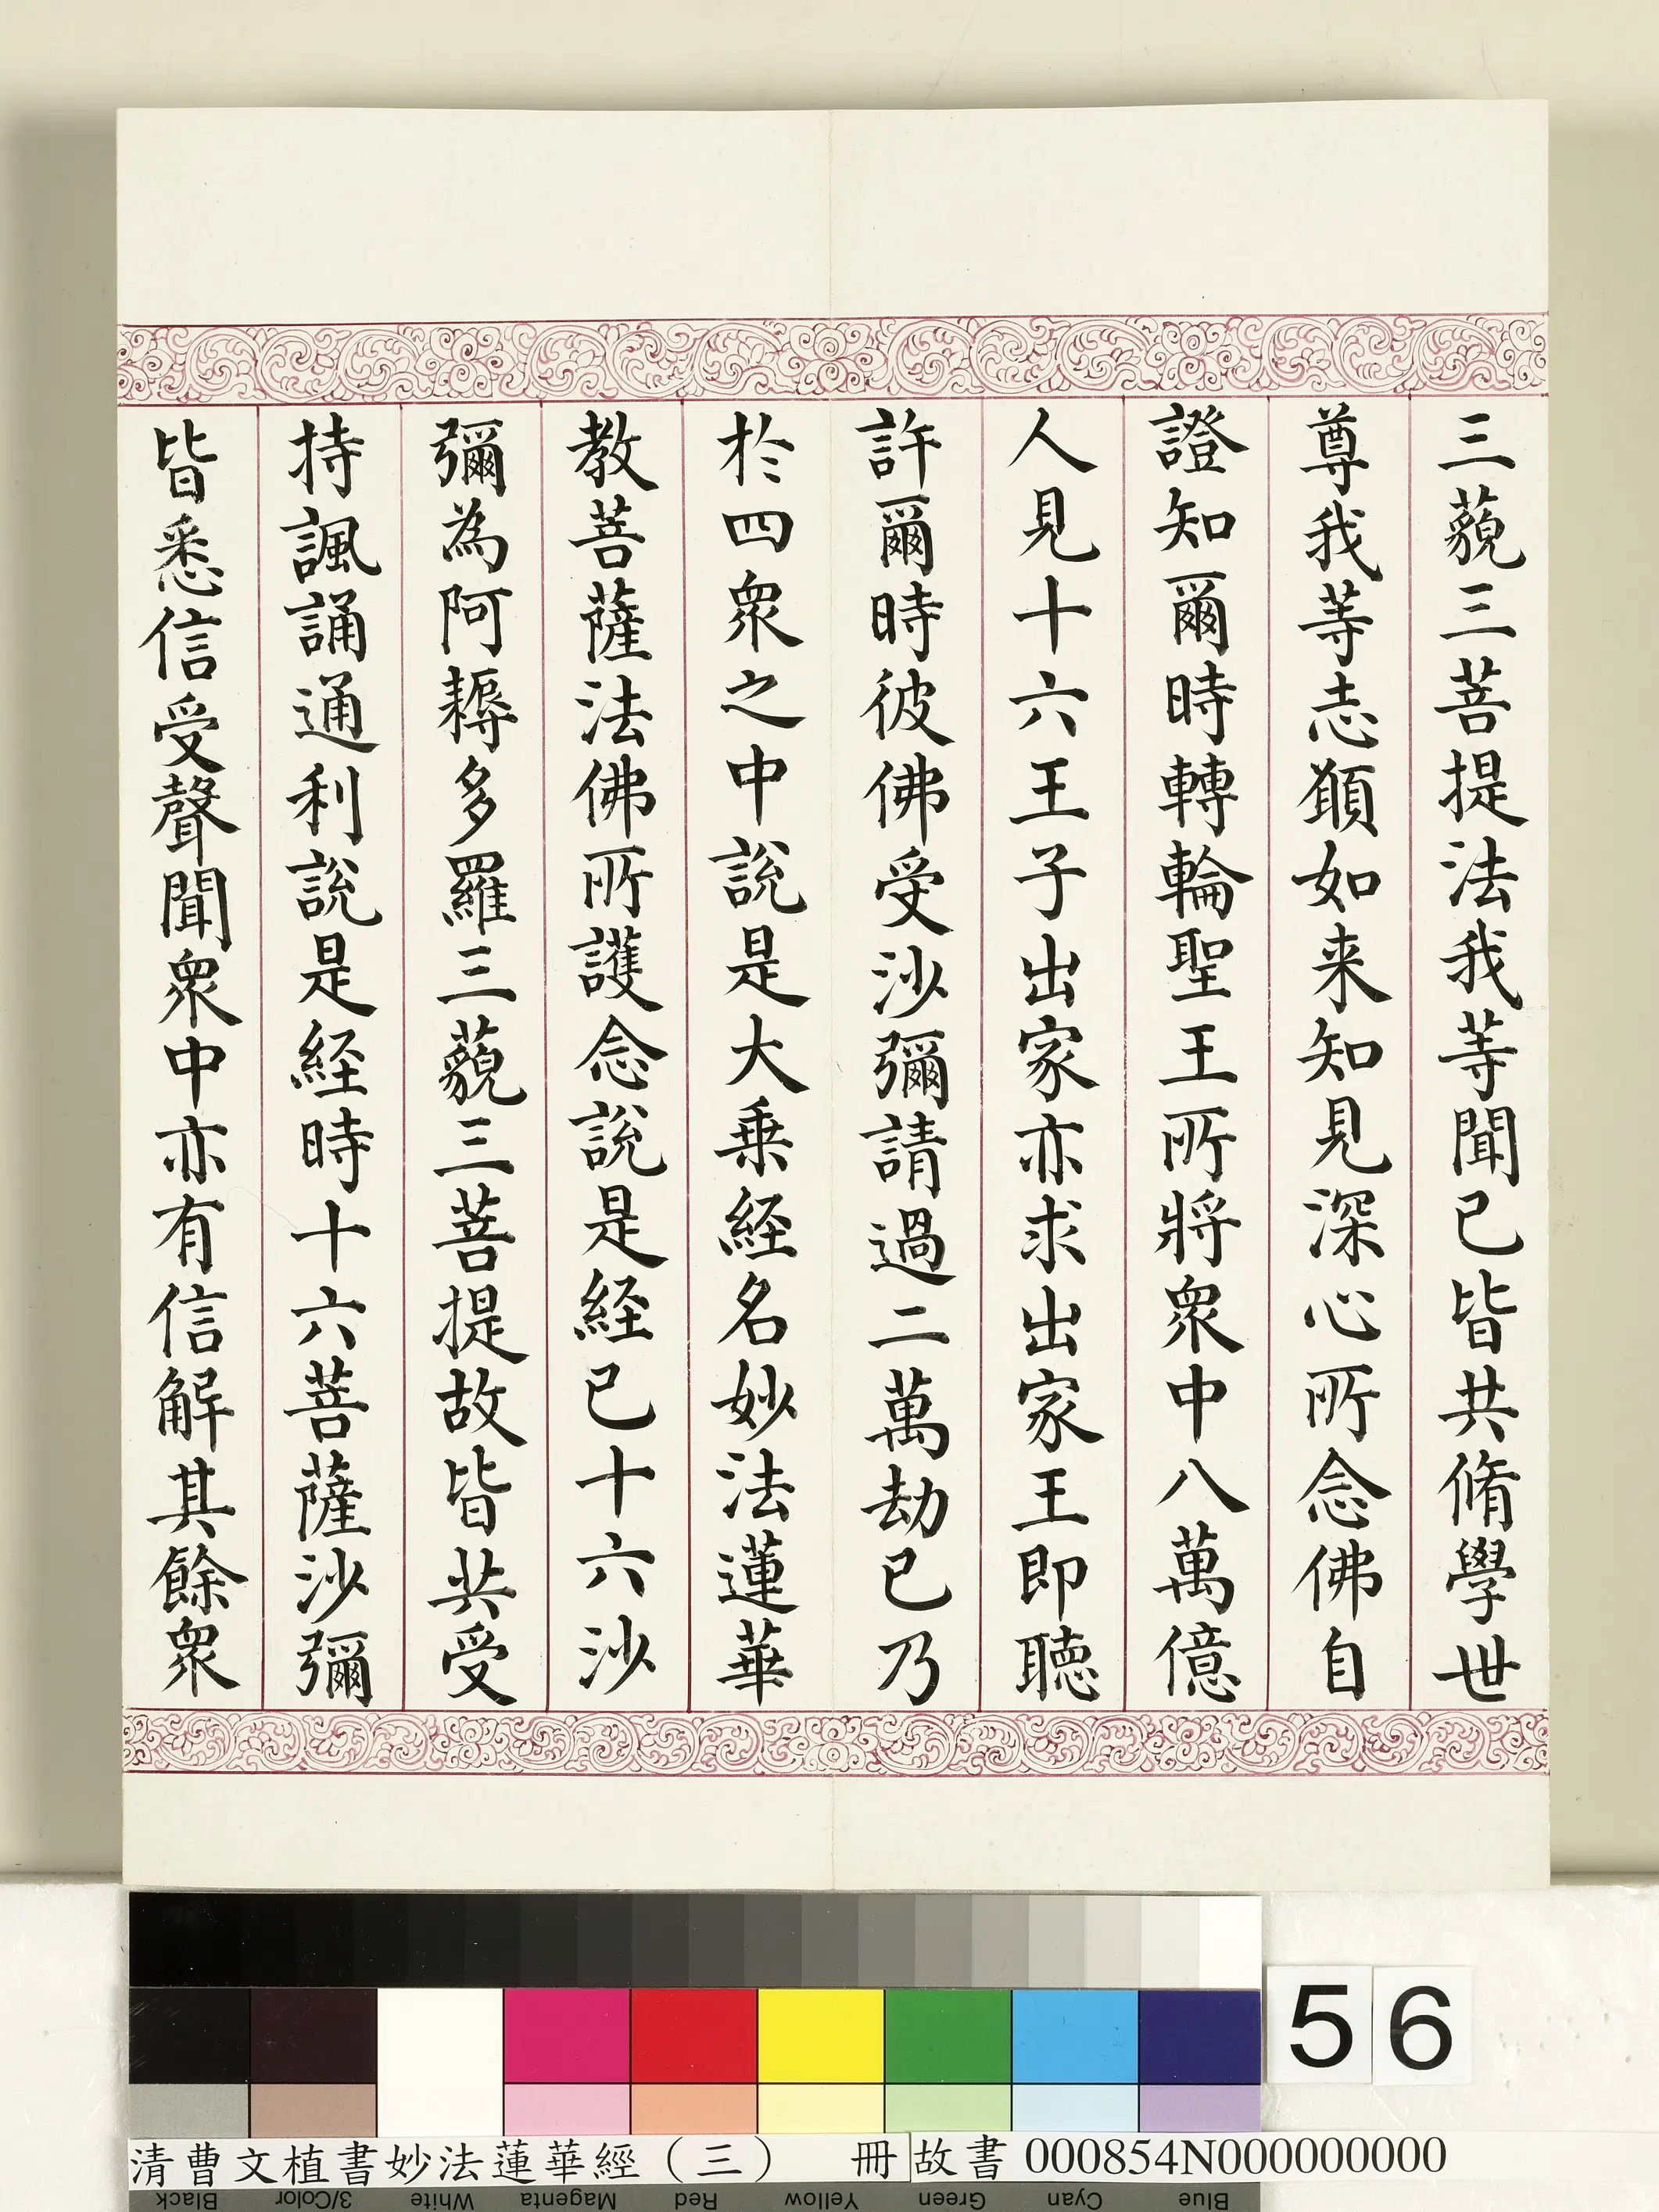 三藐三菩提法我等聞已皆共脩學世
尊我等志願如来知見深心所念佛自
證知爾時轉輪聖王所將衆中八萬億
人見十六王子出家亦求出家王即聽
許爾時彼佛受沙彌請過二萬劫已乃
於四衆之中說是大乗經名妙法蓮華
教菩薩法佛所護念說是經已十六沙
彌為阿耨多羅三藐三菩提故皆共受
持諷誦通利說是經時十六菩薩沙彌
皆悉信受聲聞衆中亦有信解其餘衆
56
清曹文植書妙法蓮華經（三） 冊 故書 000854N000000000
Black 3/Color White Magenta Red Yellow Green Cyan Blue